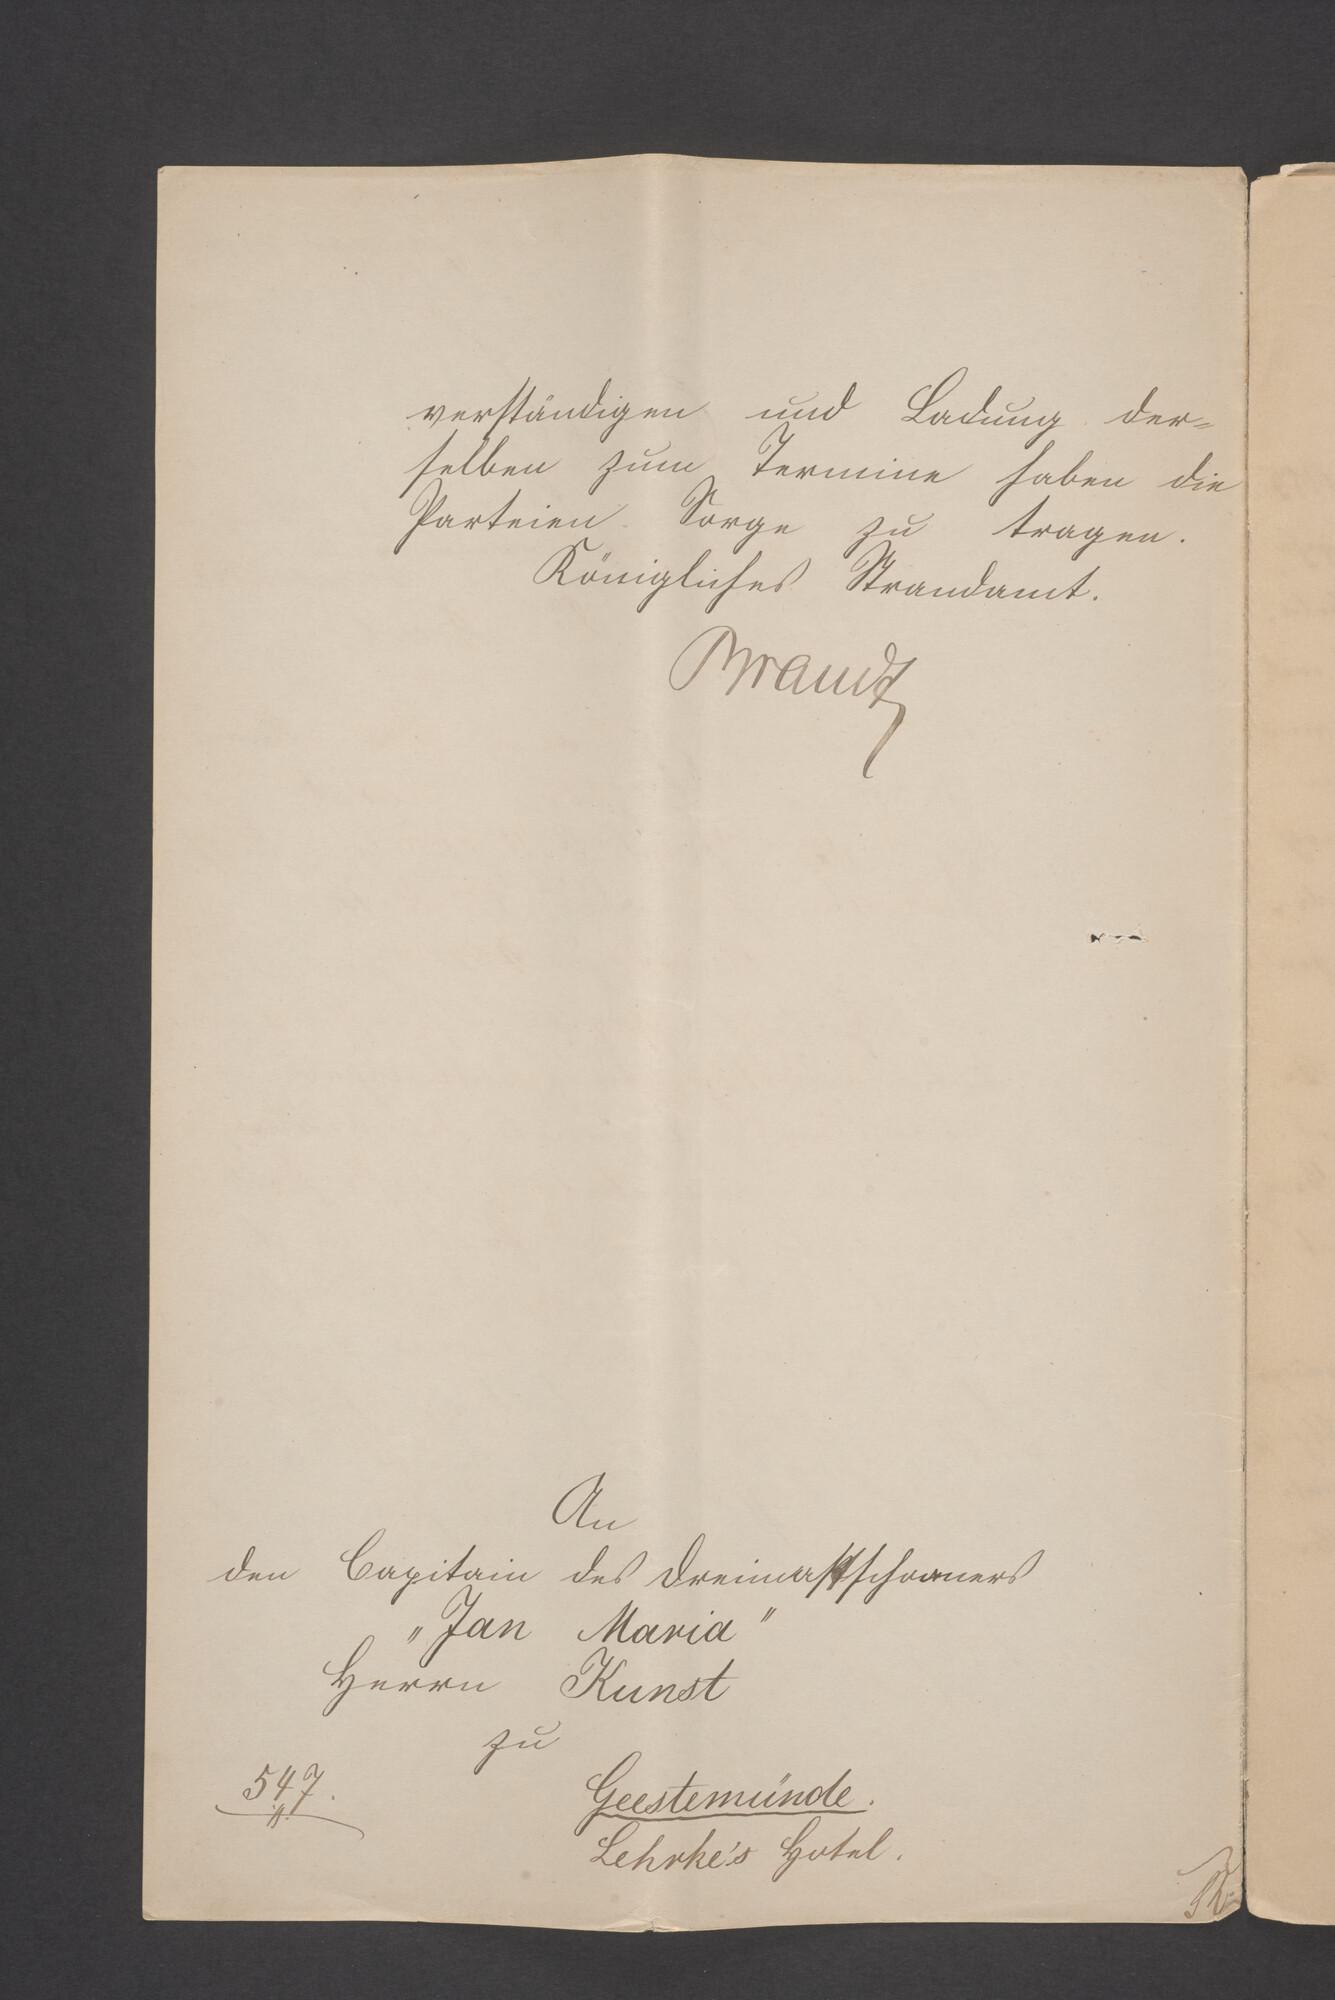 verständigen und Ladung der-
selben zum Termine haben die
Parteien Sorge zu tragen.
Königliches Strandamt.
Brandt
An
den Capitain des Dreimastschooners
„Jan Maria"
Herrn Kunst
zu
547.
Geestemünde.
Lehrke's Hotel.